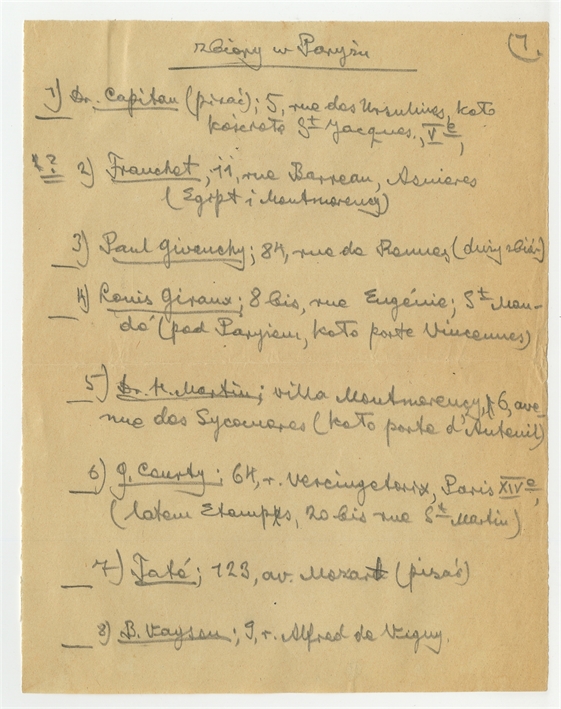 zbiory w Paryżu
7.
1) Dr. Capitan (pisać); 5, rue des Ursulines, koło
kościoła St Jacques, Ve,
? 2) Franchet, 11, rue Barreau, Asnieres
(Egipt i Montmorency)
3) Paul Givenchy; 84, rue de Rennes (duży zbiór)
4) Louis Giraux; 8 bis, rue Eugénie; St Man-
dé (pod Paryżem, koło porte Vincennes)
5) Dr. H. Martin; villa Montmorency, 6, ave-
nue des Sycomores (koło porte d'Auteuil)
6) G. Courty; 64, r. Vercingetorix, Paris XIVe,
(latem Etampes, 20 bis rue St Martin)
7) Taté; 123, av. Mozart (pisać)
8) B. Vayson; 9, r. Alfred de Vigny.